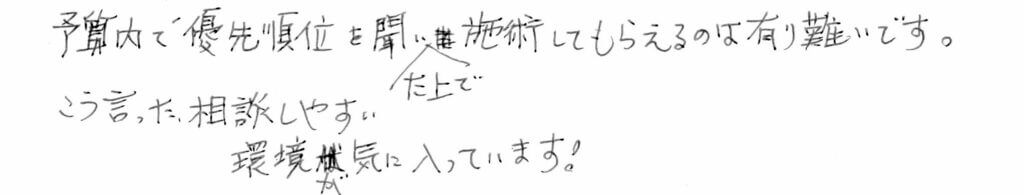 予算内で優先順位を聞いた上で施術してもらえるのは有り難いです。
こう言った、相談しやすい
環境が気に入っています!